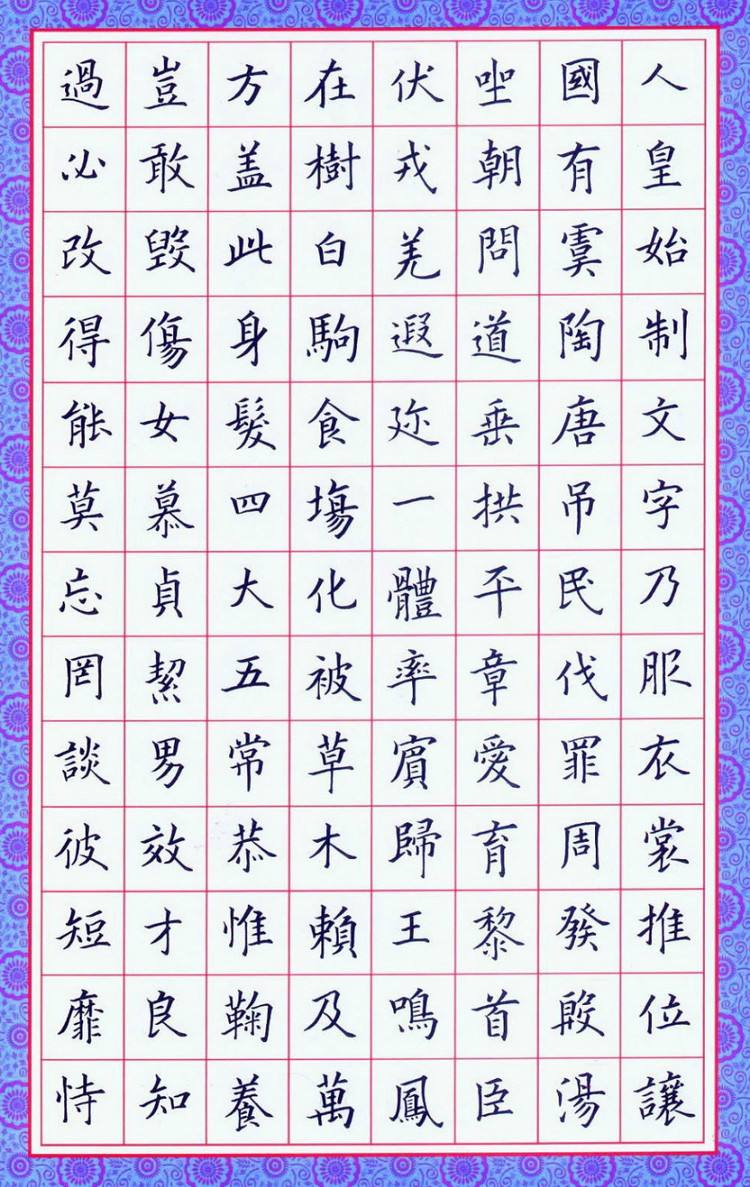 人皇始制文字乃服衣裳推位讓
國有虞陶唐吊民伐罪周發殷湯
坐朝問道垂拱平章愛育黎首臣
伏戎羌遐迩一體率賓歸王鳴鳳
在樹白駒食塲化被草木賴及萬
方盖此身髮四大五常恭惟鞠養
豈敢毀傷女慕貞絜男效才良知
過必改得能莫忘罔談彼短靡恃